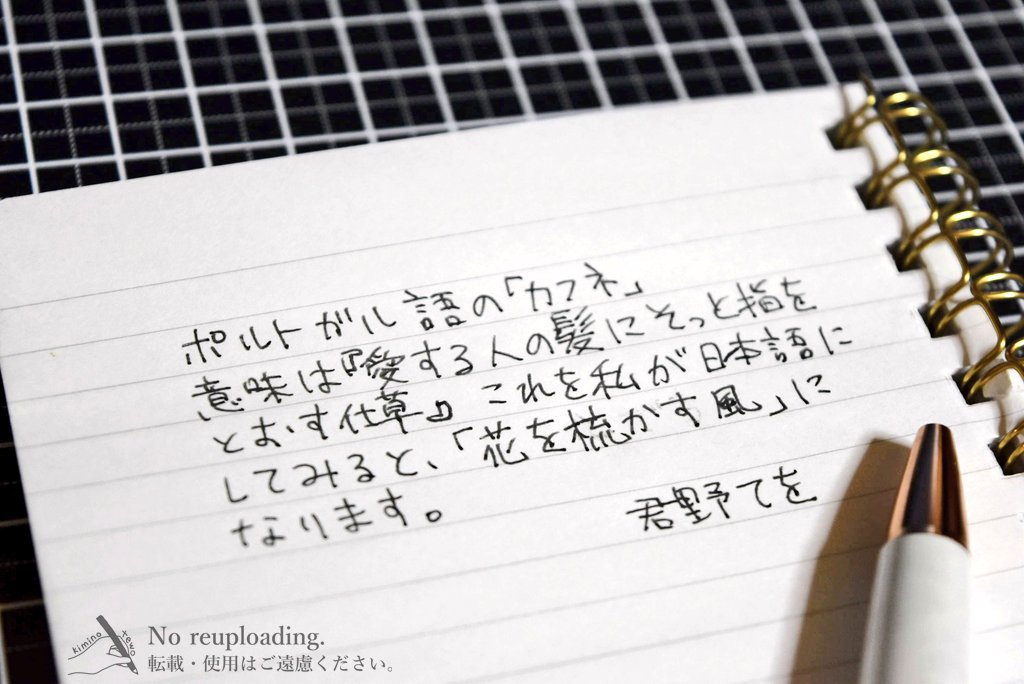 ポルトガル語の「カフネ」
意味は『愛する人の髪にそっと指を
とおす仕草』 これを私が日本語に
してみると、「花を梳かす風」に
なります。
君野てを
kimino tewo
No reuploading.
転載・使用はご遠慮ください。